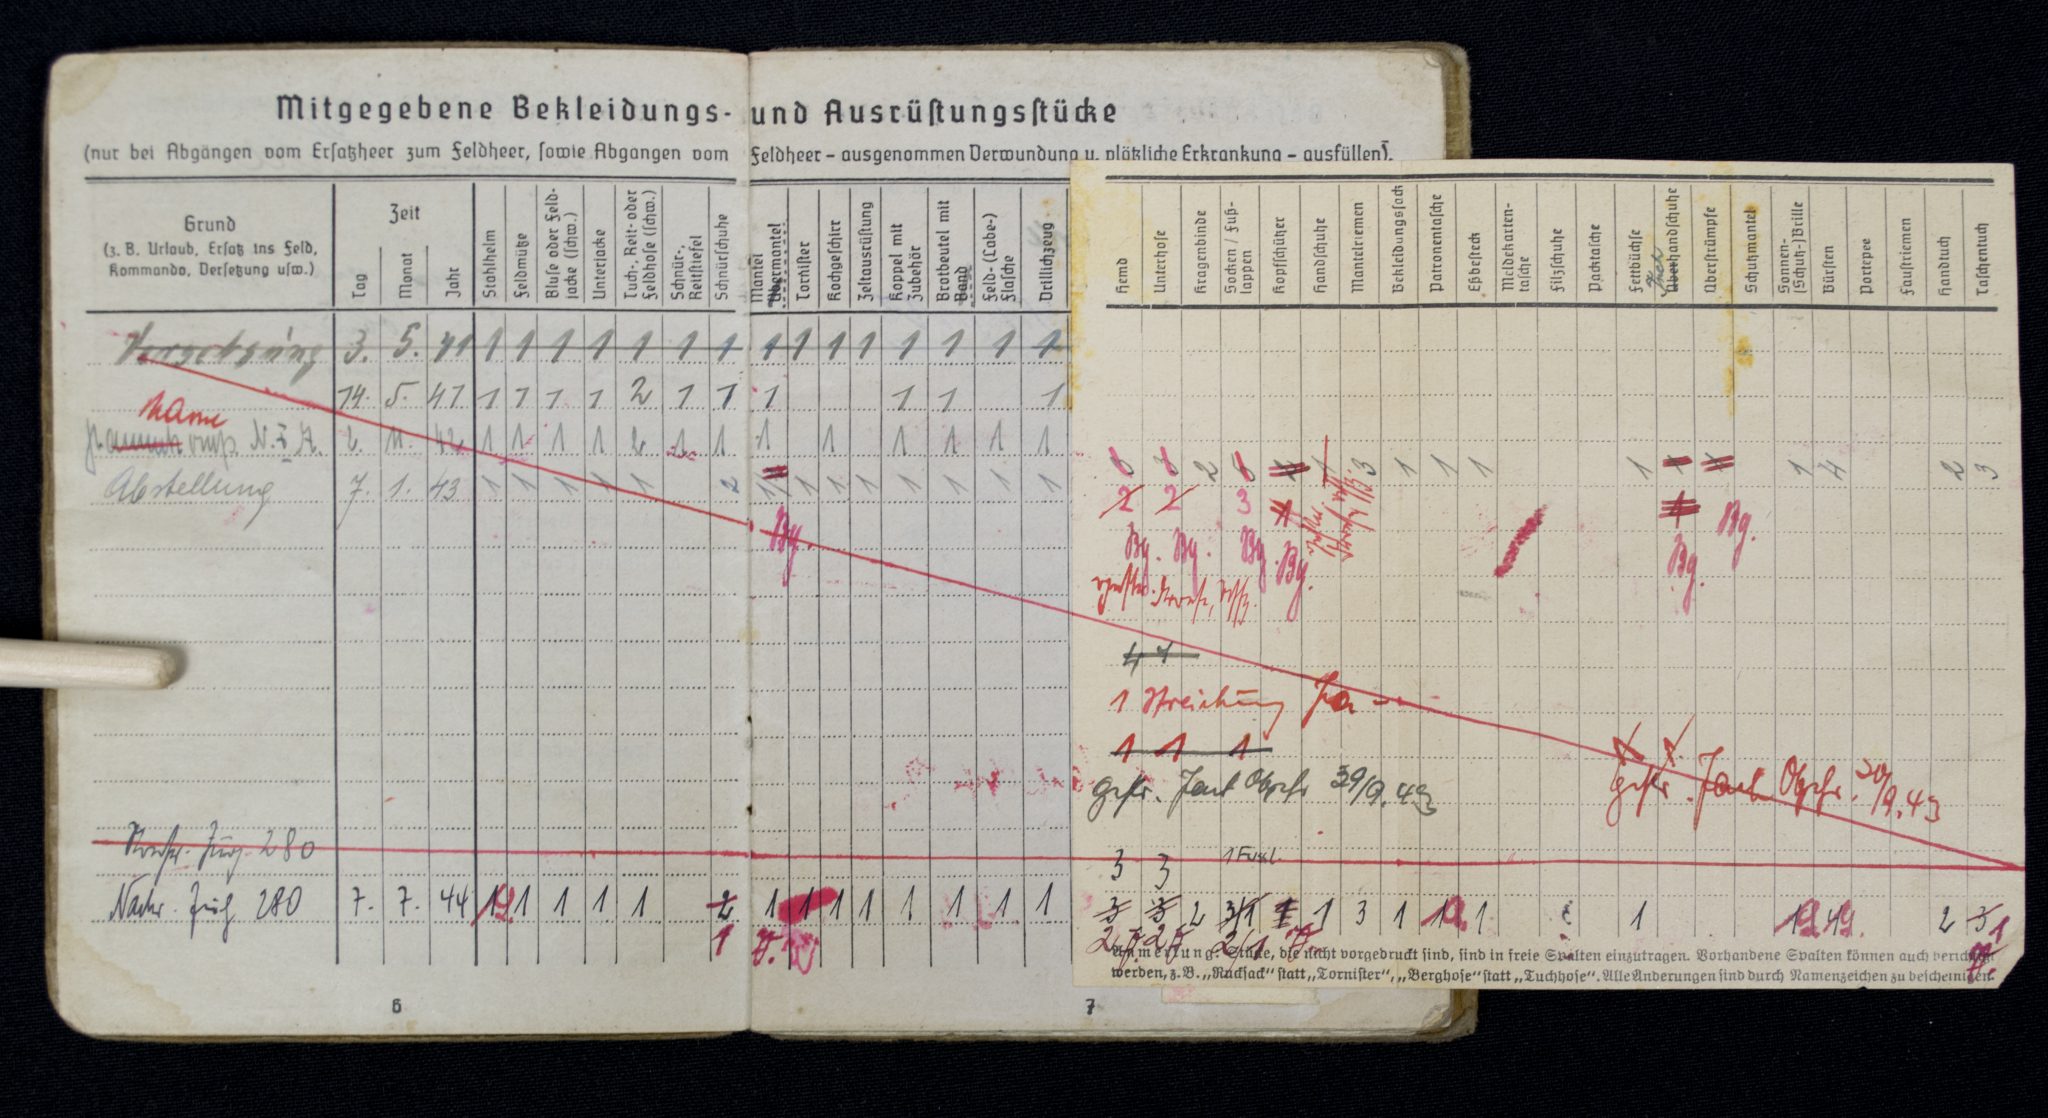 Mitgegebene Bekleidungs- und Ausrüstungsstücke
(nur bei Abgängen vom Ersatzheer zum Feldheer, sowie Abgangen vom Feldheer – ausgenommen Verwundung u. plötzliche Erkrankung – ausfüllen).
Grund
(z. B. Urlaub, Ersatz ins Feld,
Kommando, Versetzung usw.)
Zeit
Tag
Monat
Jahr
Stahlhelm
Feldmütze
Bluse oder Feld-
jacke (schw.)
Unterjacke
Tuch-, Reit- oder
Feldhose (schw.)
Schnür-,
Reitstiefel
Schnürschuhe
Mantel
Übermantel
Tornister
Kochgeschirr
Zeltausrüstung
Koppel mit
Zubehör
Brotbeutel mit
Band
Feld- (Labe-)
flasche
Drillichzeug
Hemd
Unterhose
Kragenbinde
Socken / Fuß-
lappen
Kopfschützer
Handschuhe
Mantelriemen
Bekleidungssack
Patronentasche
Eßbesteck
Meldekarten-
tasche
Filzschuhe
Packtasche
Fettbüchse
Überhandschuhe
Überstrümpfe
Schutzmantel
Sonnen-
(Schutz-)Brille
Bürsten
Portepee
Faustriemen
Handtuch
Taschentuch
Versetzung 3. 5. 41 1 1 1 1 1 1 1 1 1 1 1 1 1 1 1
14. 5. 41 1 1 1 1 2 1 1 1 1 1 1
Name
2. 11. 42 1 1 1 1 2 1 1 1 1 1 1 1 1
8 8 2 8 1 1 3 1 1 1 1 1 1 1 4 2 3
Abstellung 7. 1. 43 1 1 1 1 1 2 1 1 1 1 1 1 1 1
2 2 3 1 1
Bg.
Bg. Bg. Bg. Bg. Bg. Bg.
4 1
1 Streichung Ja
1 1 1
1 1.
gestr. Obgefr. 39/9. 43
gestr. Obgefr. 30/9. 43
Nachr. Zug 280
3 3 1 Fußl.
Nachr. Zug 280 7. 7. 44 1 1 1 1 1 2 1 1 1 1 1 1 1 1
3 3 2 3/1 1 1 3 1 1 1 1 1 4 2 3 1
1 2 2 2/1
Anmerkung: Stücke, die nicht vorgedruckt sind, sind in freie Spalten einzutragen. Vorhandene Spalten können auch berichtigt
werden, z. B. „Rucksack“ statt „Tornister“, „Berghose“ statt „Tuchhose“. Alle Änderungen sind durch Namenzeichen zu bescheinigen.
6
7